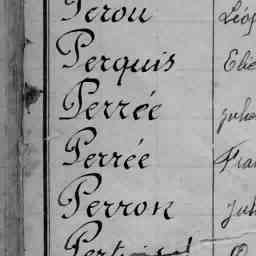 Perou Léo
Perquis Elie
Perrée Julie
Perrée Fra
Perron Jul